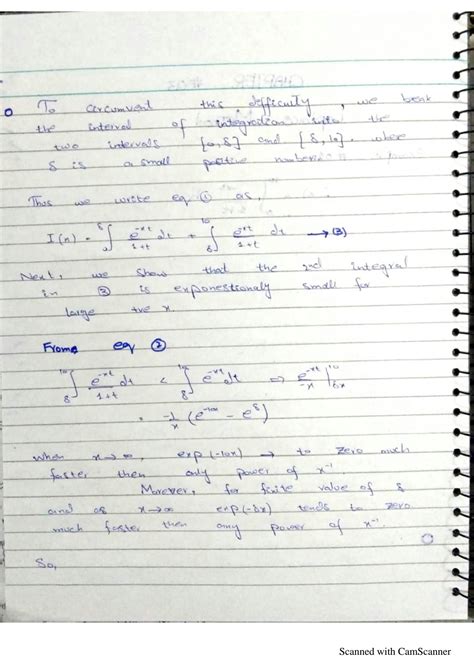 To circumvent this difficulty, we beak
the interval of integration into the
two intervals [0,δ] and [δ,10], where
δ is a small positive number
Thus we write eq ① as,
I(n) = ∫₀^δ e^-xt/1+t dt + ∫_δ^10 e^-xt/1+t dt → (3)
Next, we show that the 2nd integral
in ③ is exponestionaly small for
large +ve x.
From eq ②
∫_δ^10 e^-xt/1+t dt < ∫_δ^10 e^-xt dt ⇒ e^-xt/-x |
= -1/x (e^-10x - e^δ)
when x→∞, exp(-10x) → to zero much
faster then any power of x^-1
Morever, for finite value of δ
and as x→∞ exp(-δx) tends to zero
much faster then any power of x^-1
So,
Scanned with CamScanner